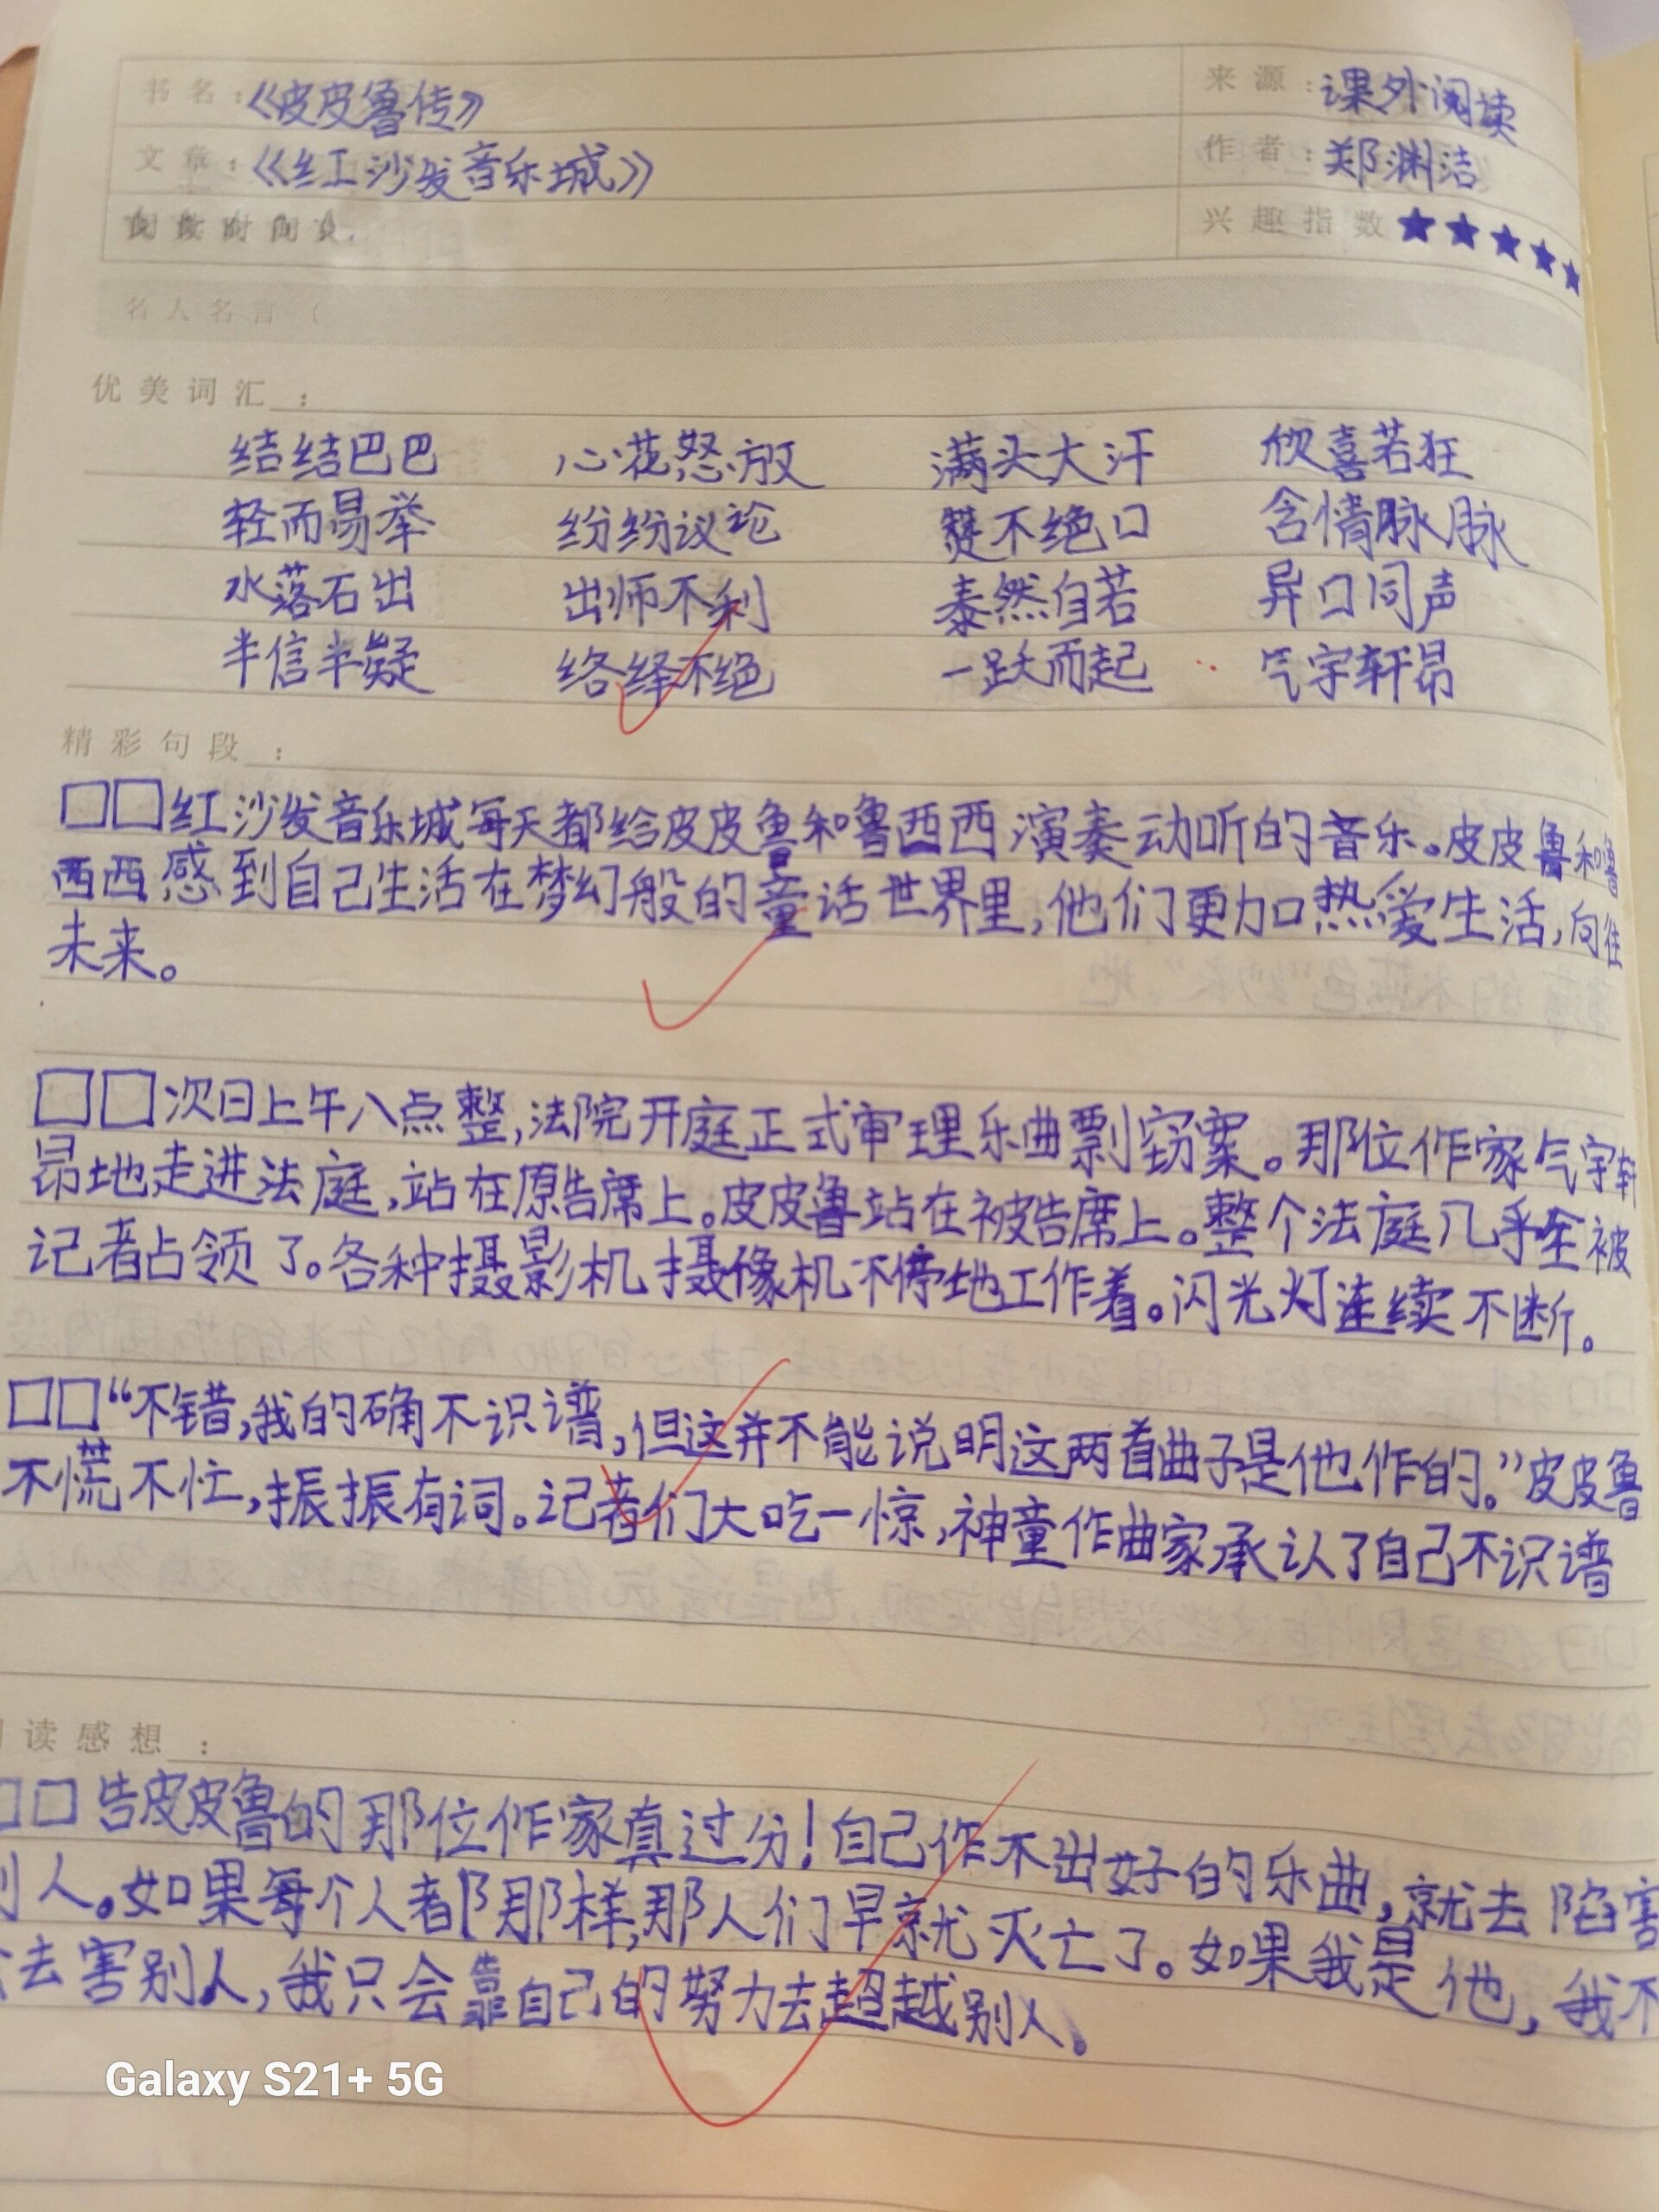 书名：《皮皮鲁传》 来源：课外阅读
文章：《红沙发音乐城》 作者：郑渊洁
兴趣指数★★★★★
名人名言（
优美词汇：
结结巴巴 心花怒放 满头大汗 欣喜若狂
轻而易举 纷纷议论 赞不绝口 含情脉脉
水落石出 出师不利 泰然自若 异口同声
半信半疑 络绎不绝 一跃而起 气宇轩昂
精彩句段：
□□红沙发音乐城每天都给皮皮鲁和鲁西西演奏动听的音乐。皮皮鲁和鲁
西西感到自己生活在梦幻般的童话世界里，他们更加热爱生活，向往
未来。
□□次日上午八点整，法院开庭正式审理乐曲剽窃案。那位作家气宇轩
昂地走进法庭，站在原告席上。皮皮鲁站在被告席上。整个法庭几乎全被
记者占领了。各种摄影机摄像机不停地工作着。闪光灯连续不断。
□□“不错，我的确不识谱，但这并不能说明这两首曲子是他作的。”皮皮鲁
不慌不忙，振振有词。记者们大吃一惊，神童作曲家承认了自己不识谱
读感想：
□□告皮皮鲁的那位作家真过分！自己作不出好的乐曲，就去陷害
别人。如果每个人都那样，那人们早就灭亡了。如果我是他，我不
去害别人，我只会靠自己的努力去超越别人。
Galaxy S21+ 5G